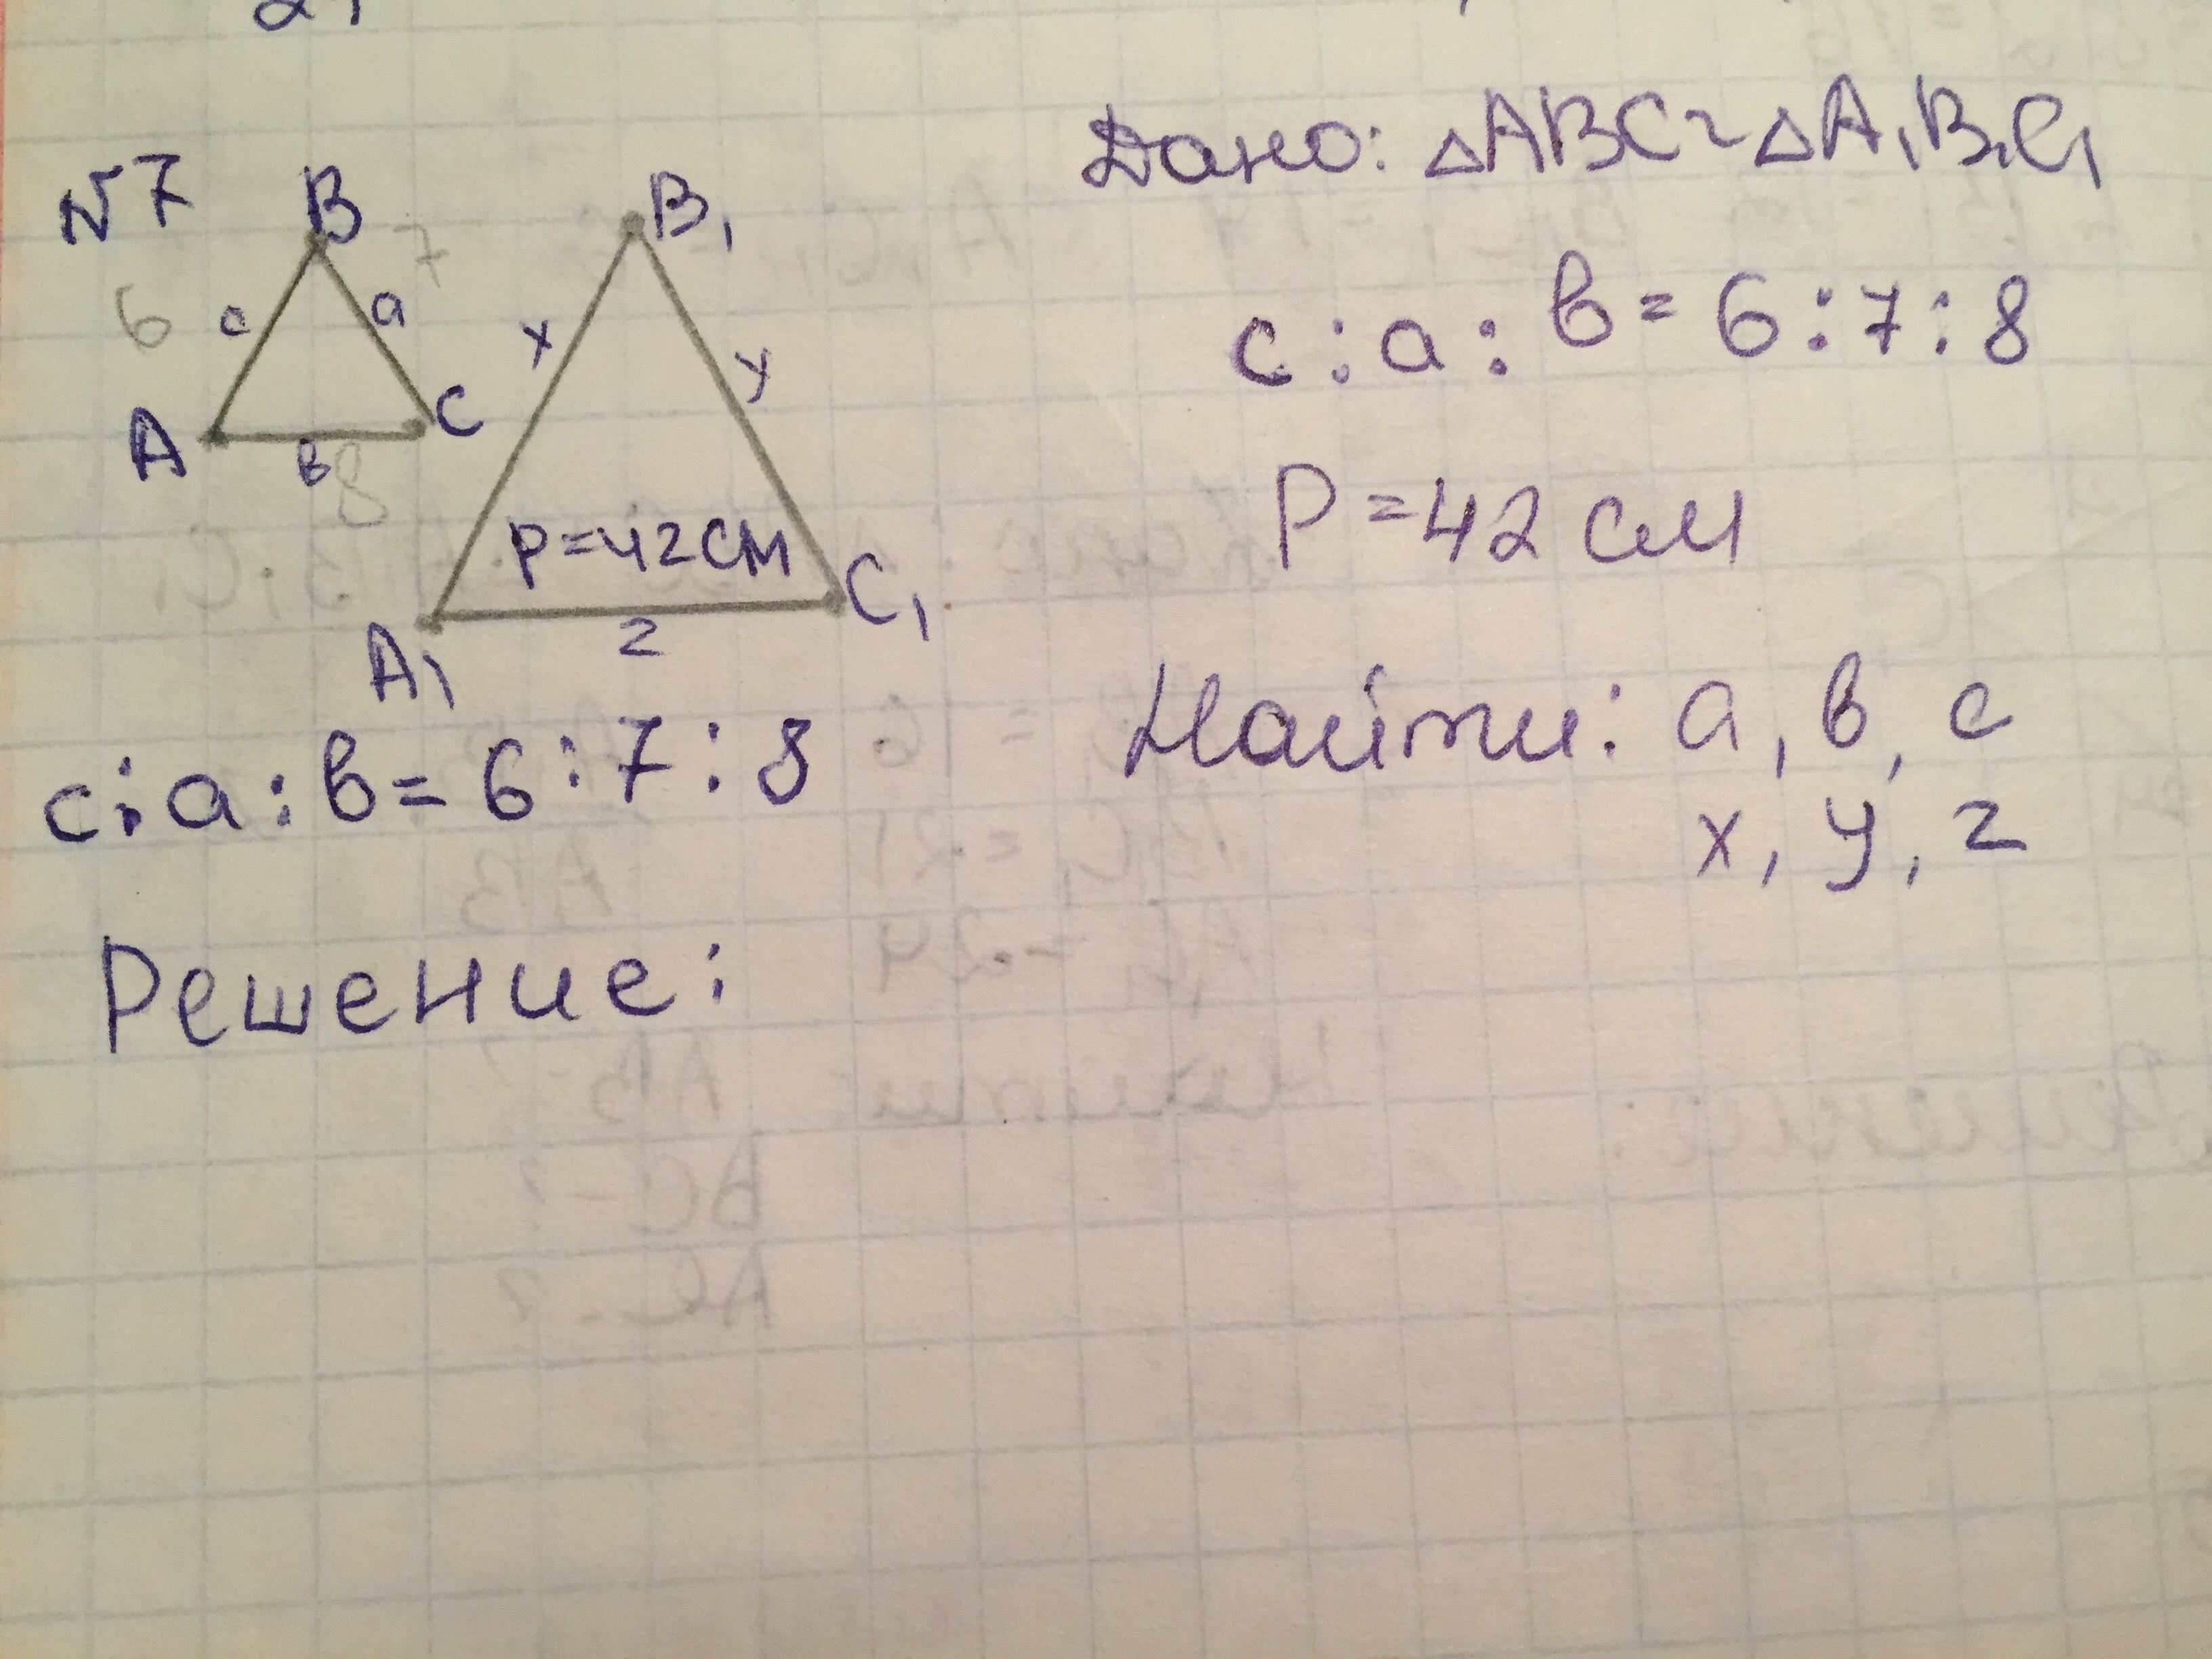 N7
B
7
6
c
a
A
C
в
8
B₁
x
y
P=42см
A₁
C₁
z
c:a:в=6:7:8
Решение:
Дано: △ABC~△A₁B₁C₁
c:a:в=6:7:8
P=42 см
Найти: a, в, c
x, y, z